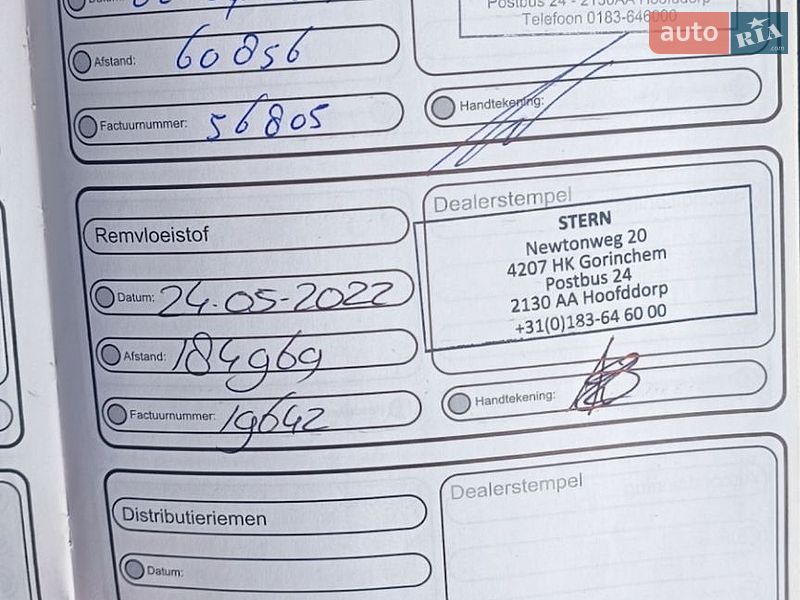 Postbus 24 - 2130AA Hoofddorp
Telefoon 0183-646000
auto RIA .com
Afstand: 60856
Factuurnummer: 56805
Handtekening:
Remvloeistof
Dealerstempel
STERN
Newtonweg 20
4207 HK Gorinchem
Postbus 24
2130 AA Hoofddorp
+31(0)183-64 60 00
Datum: 24-05-2022
Afstand: 184969
Factuurnummer: 19642
Handtekening:
Distributieriemen
Dealerstempel
Datum: